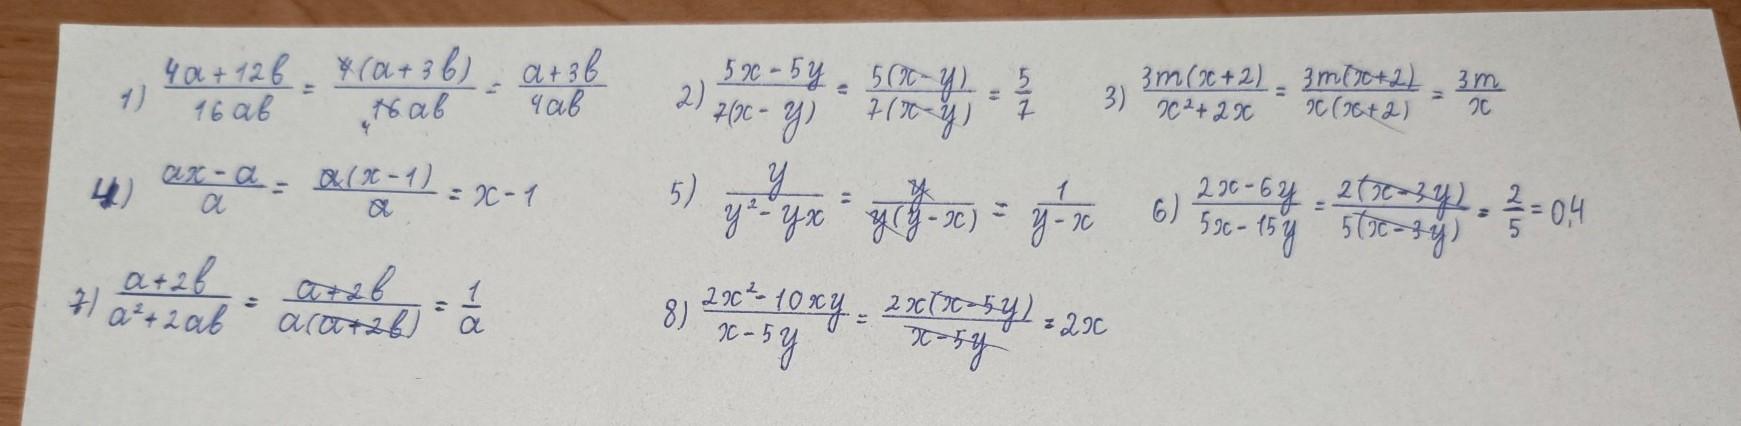 1) (4a+12b)/(16ab) = (4(a+3b))/(16ab) 4 = (a+3b)/(4ab) 2) (5x-5y)/(7(x-y)) = (5(x-y))/(7(x-y)) = 5/7 3) (3m(x+2))/(x²+2x) = (3m(x+2))/(x(x+2)) = 3m/x
4) (ax-a)/a = (a(x-1))/a = x-1 5) y/(y²-yx) = y/(y(y-x)) = 1/(y-x) 6) (2x-6y)/(5x-15y) = (2(x-3y))/(5(x-3y)) = 2/5 = 0,4
7) (a+2b)/(a²+2ab) = (a+2b)/(a(a+2b)) = 1/a 8) (2x²-10xy)/(x-5y) = (2x(x-5y))/(x-5y) = 2x